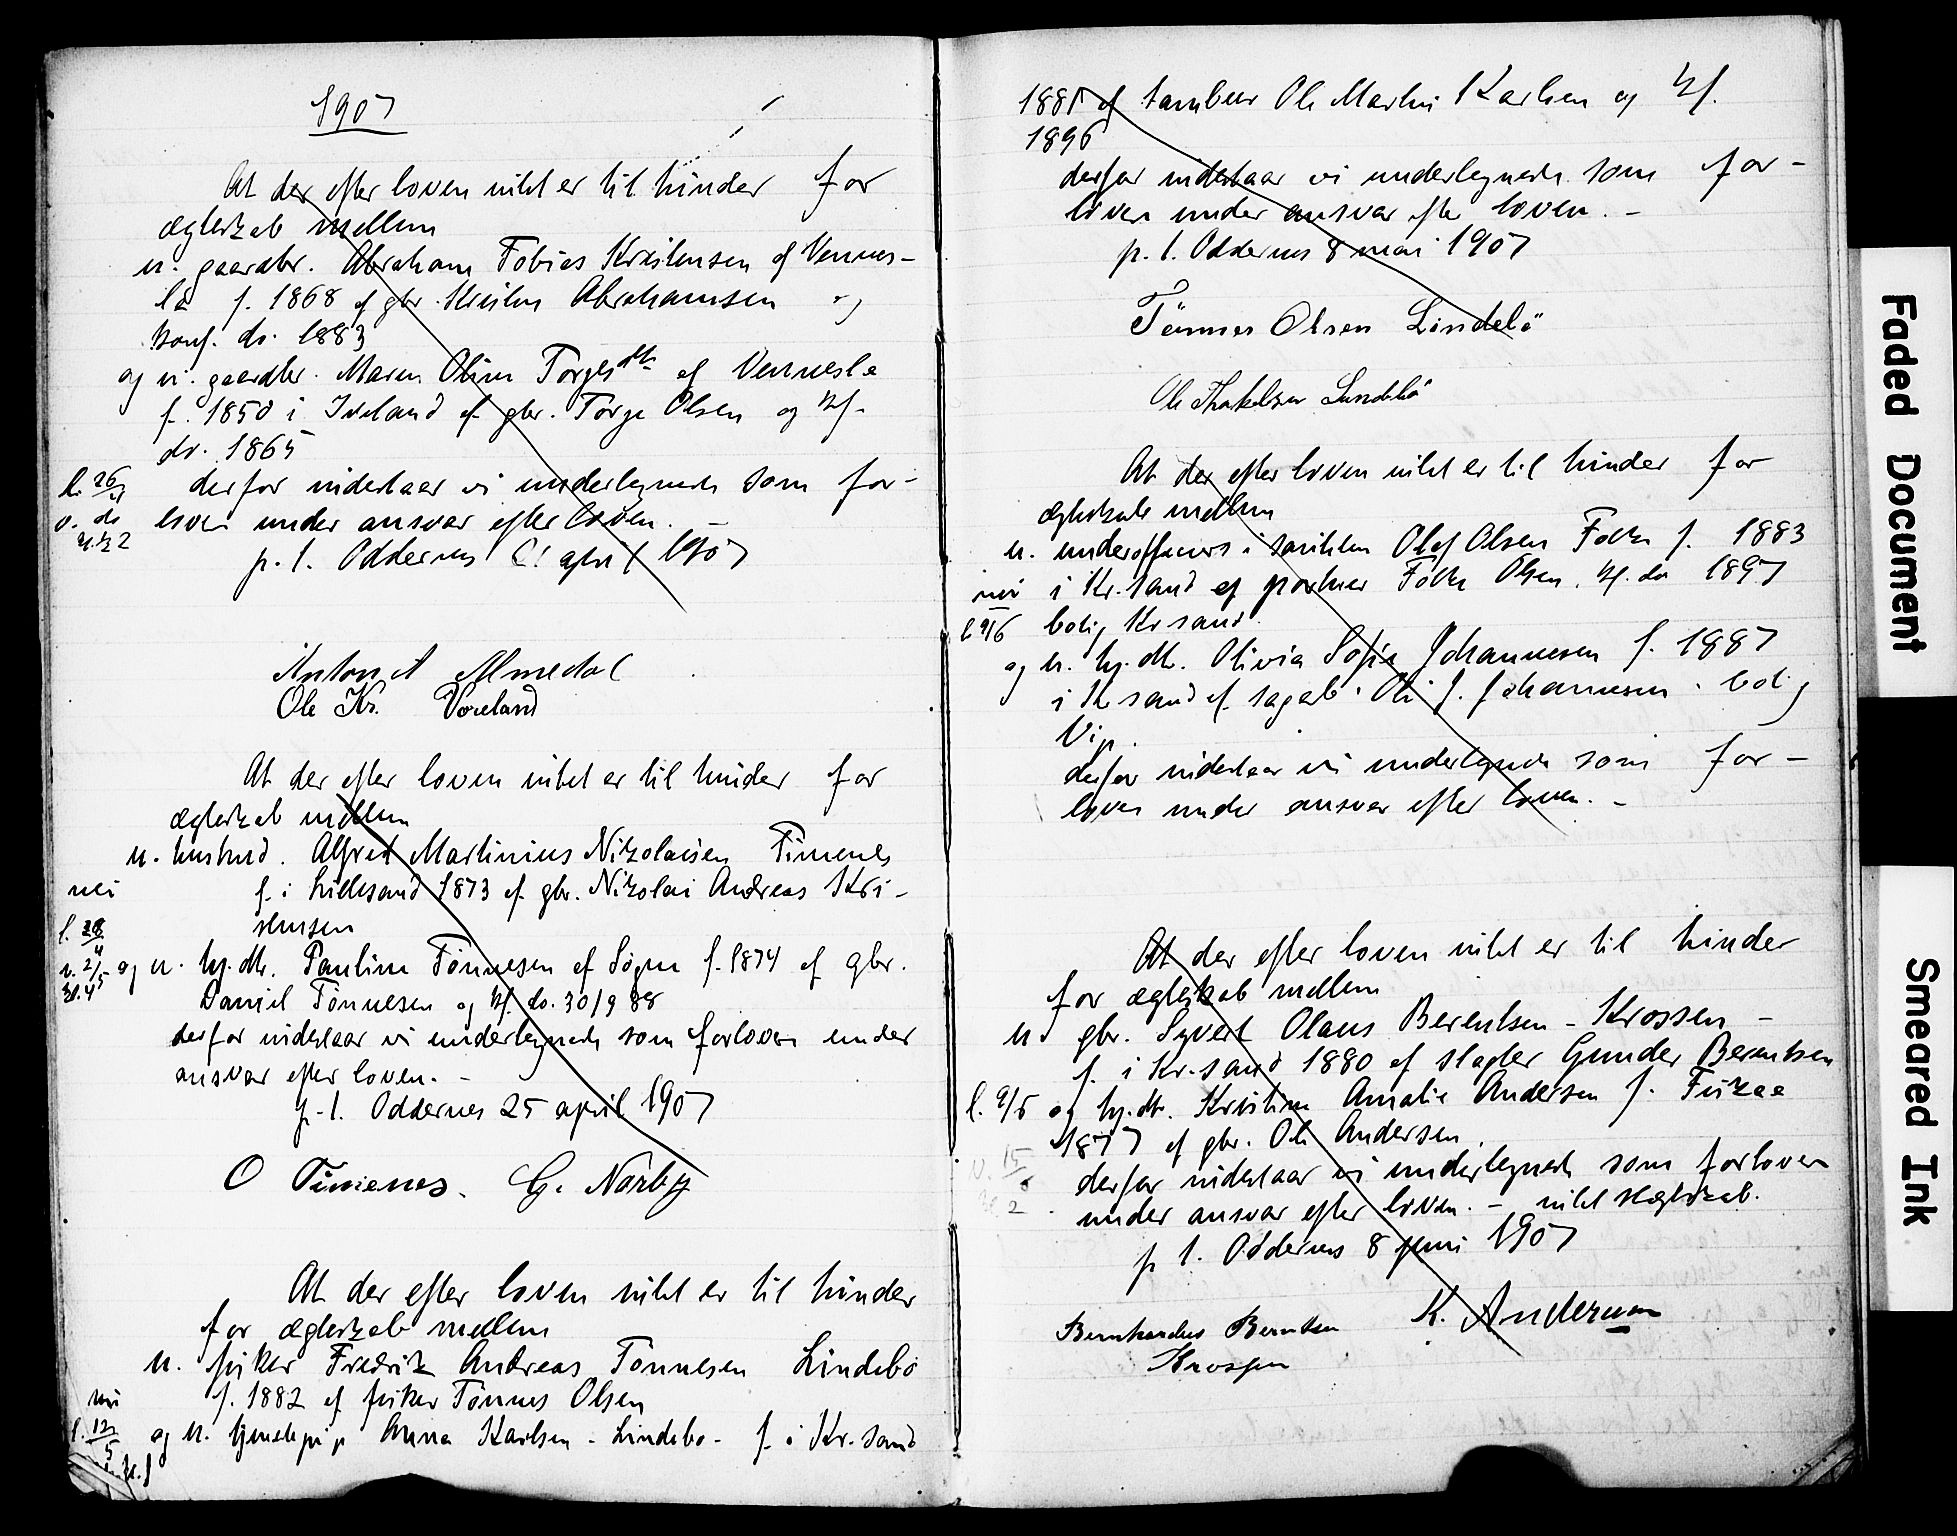 1907
At der efter loven inkt er til hinder for
ægteskab mellem
u. gaardbr. Abraham Tobias Kristensen af Vennes-
la f. 1868 af gbr. Kristen Abrahamsen og
konf. do. 1883
og u. gaardbr. Maren Oline Torgesdtr af Vennesla
f. 1850 i Iveland af gbr. Torge Olsen og kf.
do. 1865
l. 26/4 derfor indestaar vi undertegnede som for-
v. do lovere under ansvar efter loven. -
p. t. Oddernes april 1907
Anton A Almedal
Ole Kr. Voreland
At der efter loven inkt er til hinder for
ægteskab mellem
u. husmd. Alfred Martinius Nikolaisen Timenes
nei f. i Lillesand 1873 af gbr. Nikolai Andreas Kri-
l. 28/4 stensen
v. 2/5 og u. hj.dtr. Pauline Tönnesen af Sögne f. 1874 af gbr.
Daniel Tönnesen og kf. do. 30/9 88
derfor indestaar vi undertegnede som forlovere under
ansvar efter loven. -
p. t. Oddernes 25 april 1907
O Timenes. G. Narby
At der efter loven inkt er til hinder
for ægteskab mellem
u. fisker Fredrik Andreas Tönnesen Lindebö
nei f. 1882 af fisker Tönnes Olsen
l. 12/5 og u. tjenestepip Anna Karlsen - Lindebö - f. i Kr.sand
1881 af tambur Ole Martin Karlsen og kf.
1896
derfor indestaar vi undertegnede som for-
lovere under ansvar efter loven. -
p. t. Oddernes 8 mai 1907
Tönnes Olsen Lindebö
Ole Thorkelsen Lindebö
At der efter loven inkt er til hinder for
ægteskab mellem
u. underofficers i Olaf Olsen Folke f. 1883
nei i Kr.sand af portner Folke Olsen, kf. do 1897
l. 9/6 bolig Kr sand.
og u. hj.dtr. Olivia Sofie Johannesen f. 1887
i Kr sand af sagarb. Ole J. Johannesen. bolig
Vip.
derfor indestaar vi undertegnede som for-
lovere under ansvar efter loven. -
At der efter loven inkt er til hinder
for ægteskab mellem
u gbr. Syvert Olaus Berentsen - Krossen -
f. i Kr.sand 1880 af slagter Gunder Berentsen
l. 9/6 og hj.dtr. Kristine Amalie Andersen f. Fiskaa
1877 af gbr. Ole Andersen.
v. 15/6 derfor indestaar vi undertegnede som forlovere
under ansvar efter loven. - inkt slægtskab.
p t. Oddernes 8 juni 1907
K. Andersen
Bernhardus Berntsen
Krossen
Faded Document
Smeared Ink